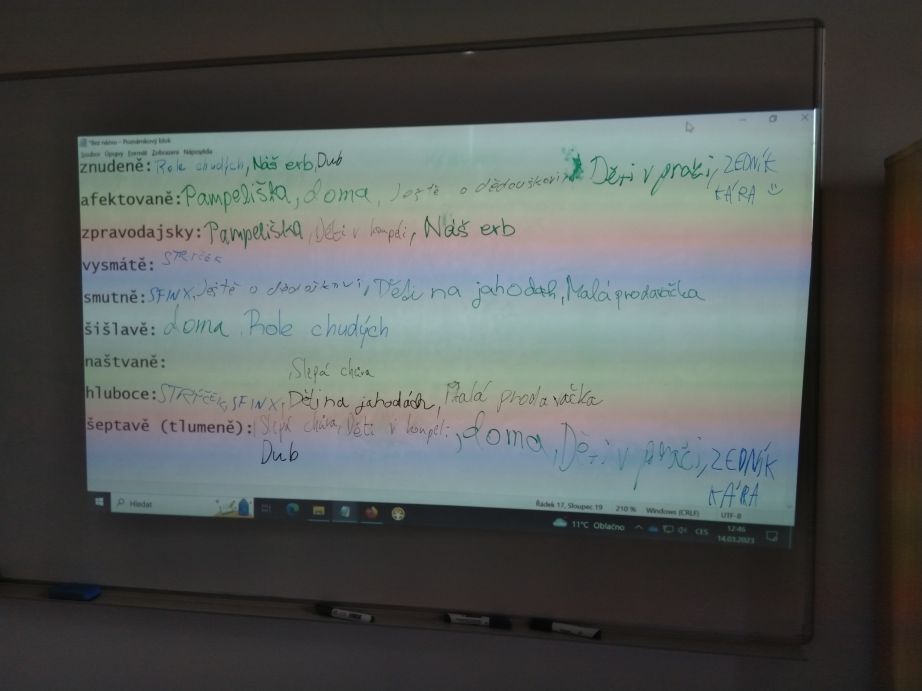 *Bez názvu – Poznámkový blok
Soubor Úpravy Formát Zobrazení Nápověda
znuděně: Role chudých, Náš erb, Dub Děti v práci, ZEDNÍK
KÁRA
afektovaně: Pampeliška, doma, Ještě o dědouškovi
zpravodajsky: Pampeliška, Děti v koupeli, Náš erb
vysmátě: STRÝČEK
smutně: SFINX, Ještě o dědouškovi, Děti na jahodách, Malá prodavačka
šišlavě: doma, Role chudých
naštvaně:
, Slepá chůva
hluboce: STRÝČEK, SFINX, Děti na jahodách, Malá prodavačka
šeptavě (tlumeně): Slepá chůva, Děti v koupeli, doma, Děti v práci, ZEDNÍK
Dub KÁRA
Řádek 17, Sloupec 19 210 % Windows (CRLF) UTF-8
Hledat 11°C Oblačno CES 12:46
14.03.2023